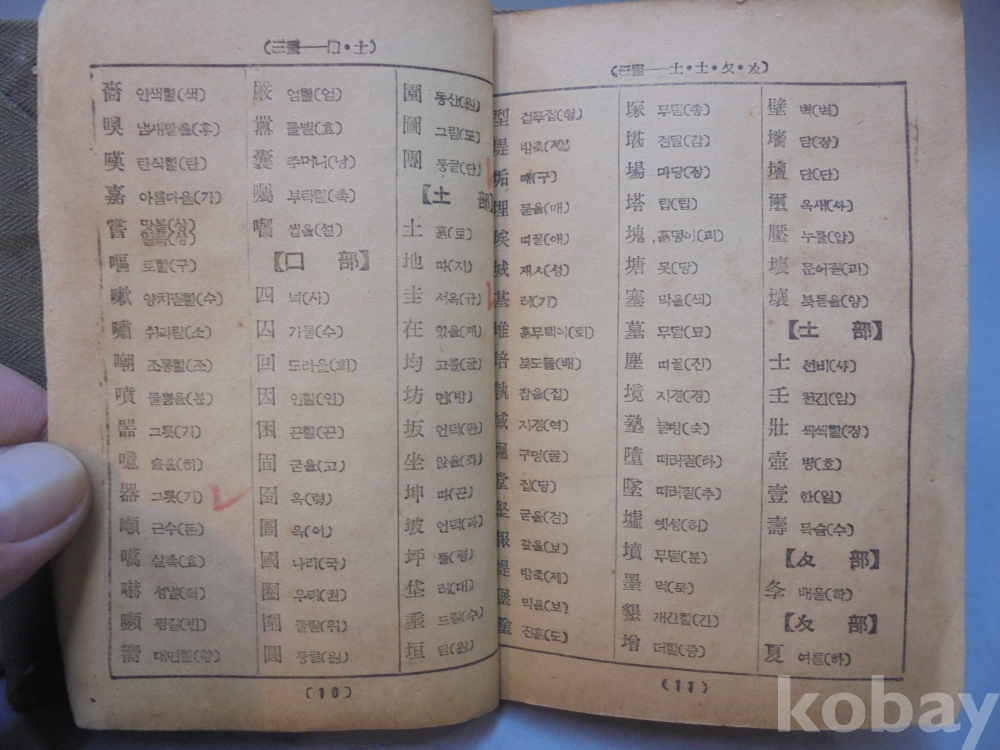 (三畫——口·土)
嗇 인색할(색)
嗅 냄새맡을(후)
嘆 탄식할(탄)
嘉 아름다을(가)
嘗 맛볼(상) 일즉(상)
嘔 토할(구)
嗽 양치질할(수)
嘯 쉬파람(소)
嘲 조롱할(조)
噴 물뿜을(분)
器 그릇(기)
噫 슬읗(하)
器 그릇(기)
噸 근수(돈)
嚆 살촉(효)
嚇 성낼(혁)
嚬 찡길(빈)
嚮 대면할(향)
嚴 엄할(엄)
囂 들넬(효)
囊 주머니(낭)
囑 부락할(촉)
囓 씹을(설)
【口 部】
四 넉(사)
囚 가둘(수)
回 도라올(회)
因 인할(인)
困 곤할(곤)
固 굳을(고)
囹 옥(령)
圄 옥(어)
國 나라(국)
圈 우리(권)
圍 둘릴(위)
圓 둥글(원)
園 동산(원)
圖 그림(도)
團 둥글(단)
【土 部】
土 흙(토)
地 따(지)
圭 서옥(규)
在 있을(재)
均 고를(균)
坊 면(방)
坂 언덕(판)
坐 앉을(좌)
坤 따(곤)
坡 언덕(파)
坪 들(평)
垈 터(대)
垂 드릴(수)
垣 담(원)
(10)
(三畫——土·士·夂·夊)
型 겁푸집(형)
堤 방축(제)
垢 때(구)
埋 묻을(매)
埃 띠끌(애)
城 재ㅅ(성)
基 터(기)
堆 흙무덕이(퇴)
培 북도들(배)
執 잡을(집)
域 지경(역)
堀 구멍(굴)
堂 집(당)
堅 굳을(견)
報 갚을(보)
堤 방축(제)
堡 막을(보)
塗 진흙(도)
塚 무덤(총)
堪 견딜(감)
場 마당(장)
塔 탑(탑)
塊 흙덩이(괴)
塘 못(당)
塞 막을(색)
墓 무덤(묘)
塵 띠끌(진)
境 지경(경)
塾 글방(숙)
墮 떠러질(타)
墜 떠러질(추)
墟 옛성(허)
墳 무덤(분)
墨 먹(묵)
墾 개간할(간)
增 더할(증)
壁 벽(벽)
墻 담(장)
壇 단(단)
璽 옥새(사)
壓 누를(압)
壞 문어질(괴)
壤 북돋을(양)
【士 部】
士 선비(사)
壬 천간(임)
壯 씩씩할(장)
壺 병(호)
壹 한(일)
壽 목숨(수)
【夂 部】
夆 배울(학)
【夊 部】
夏 여름(하)
(11)
kobay